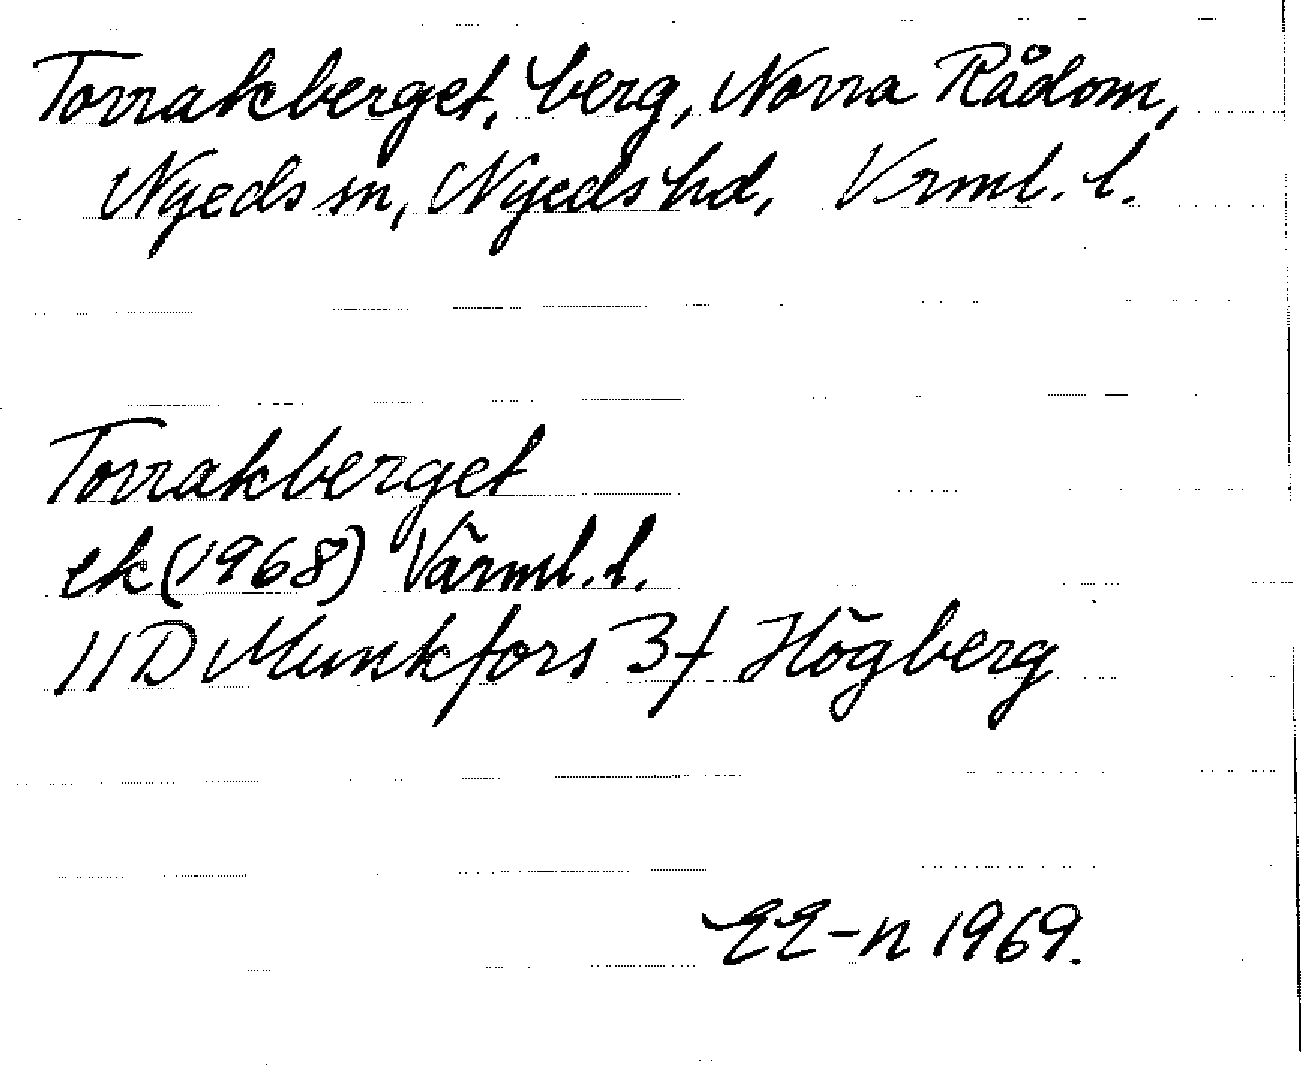 Torrakberget, berg, Norra Rådom,
Nyeds sn, Nyeds hd, Vrml. l.
Torrakberget
ek (1968) Värml. l.
11D Munkfors 3f Högberg
EE-n 1969.